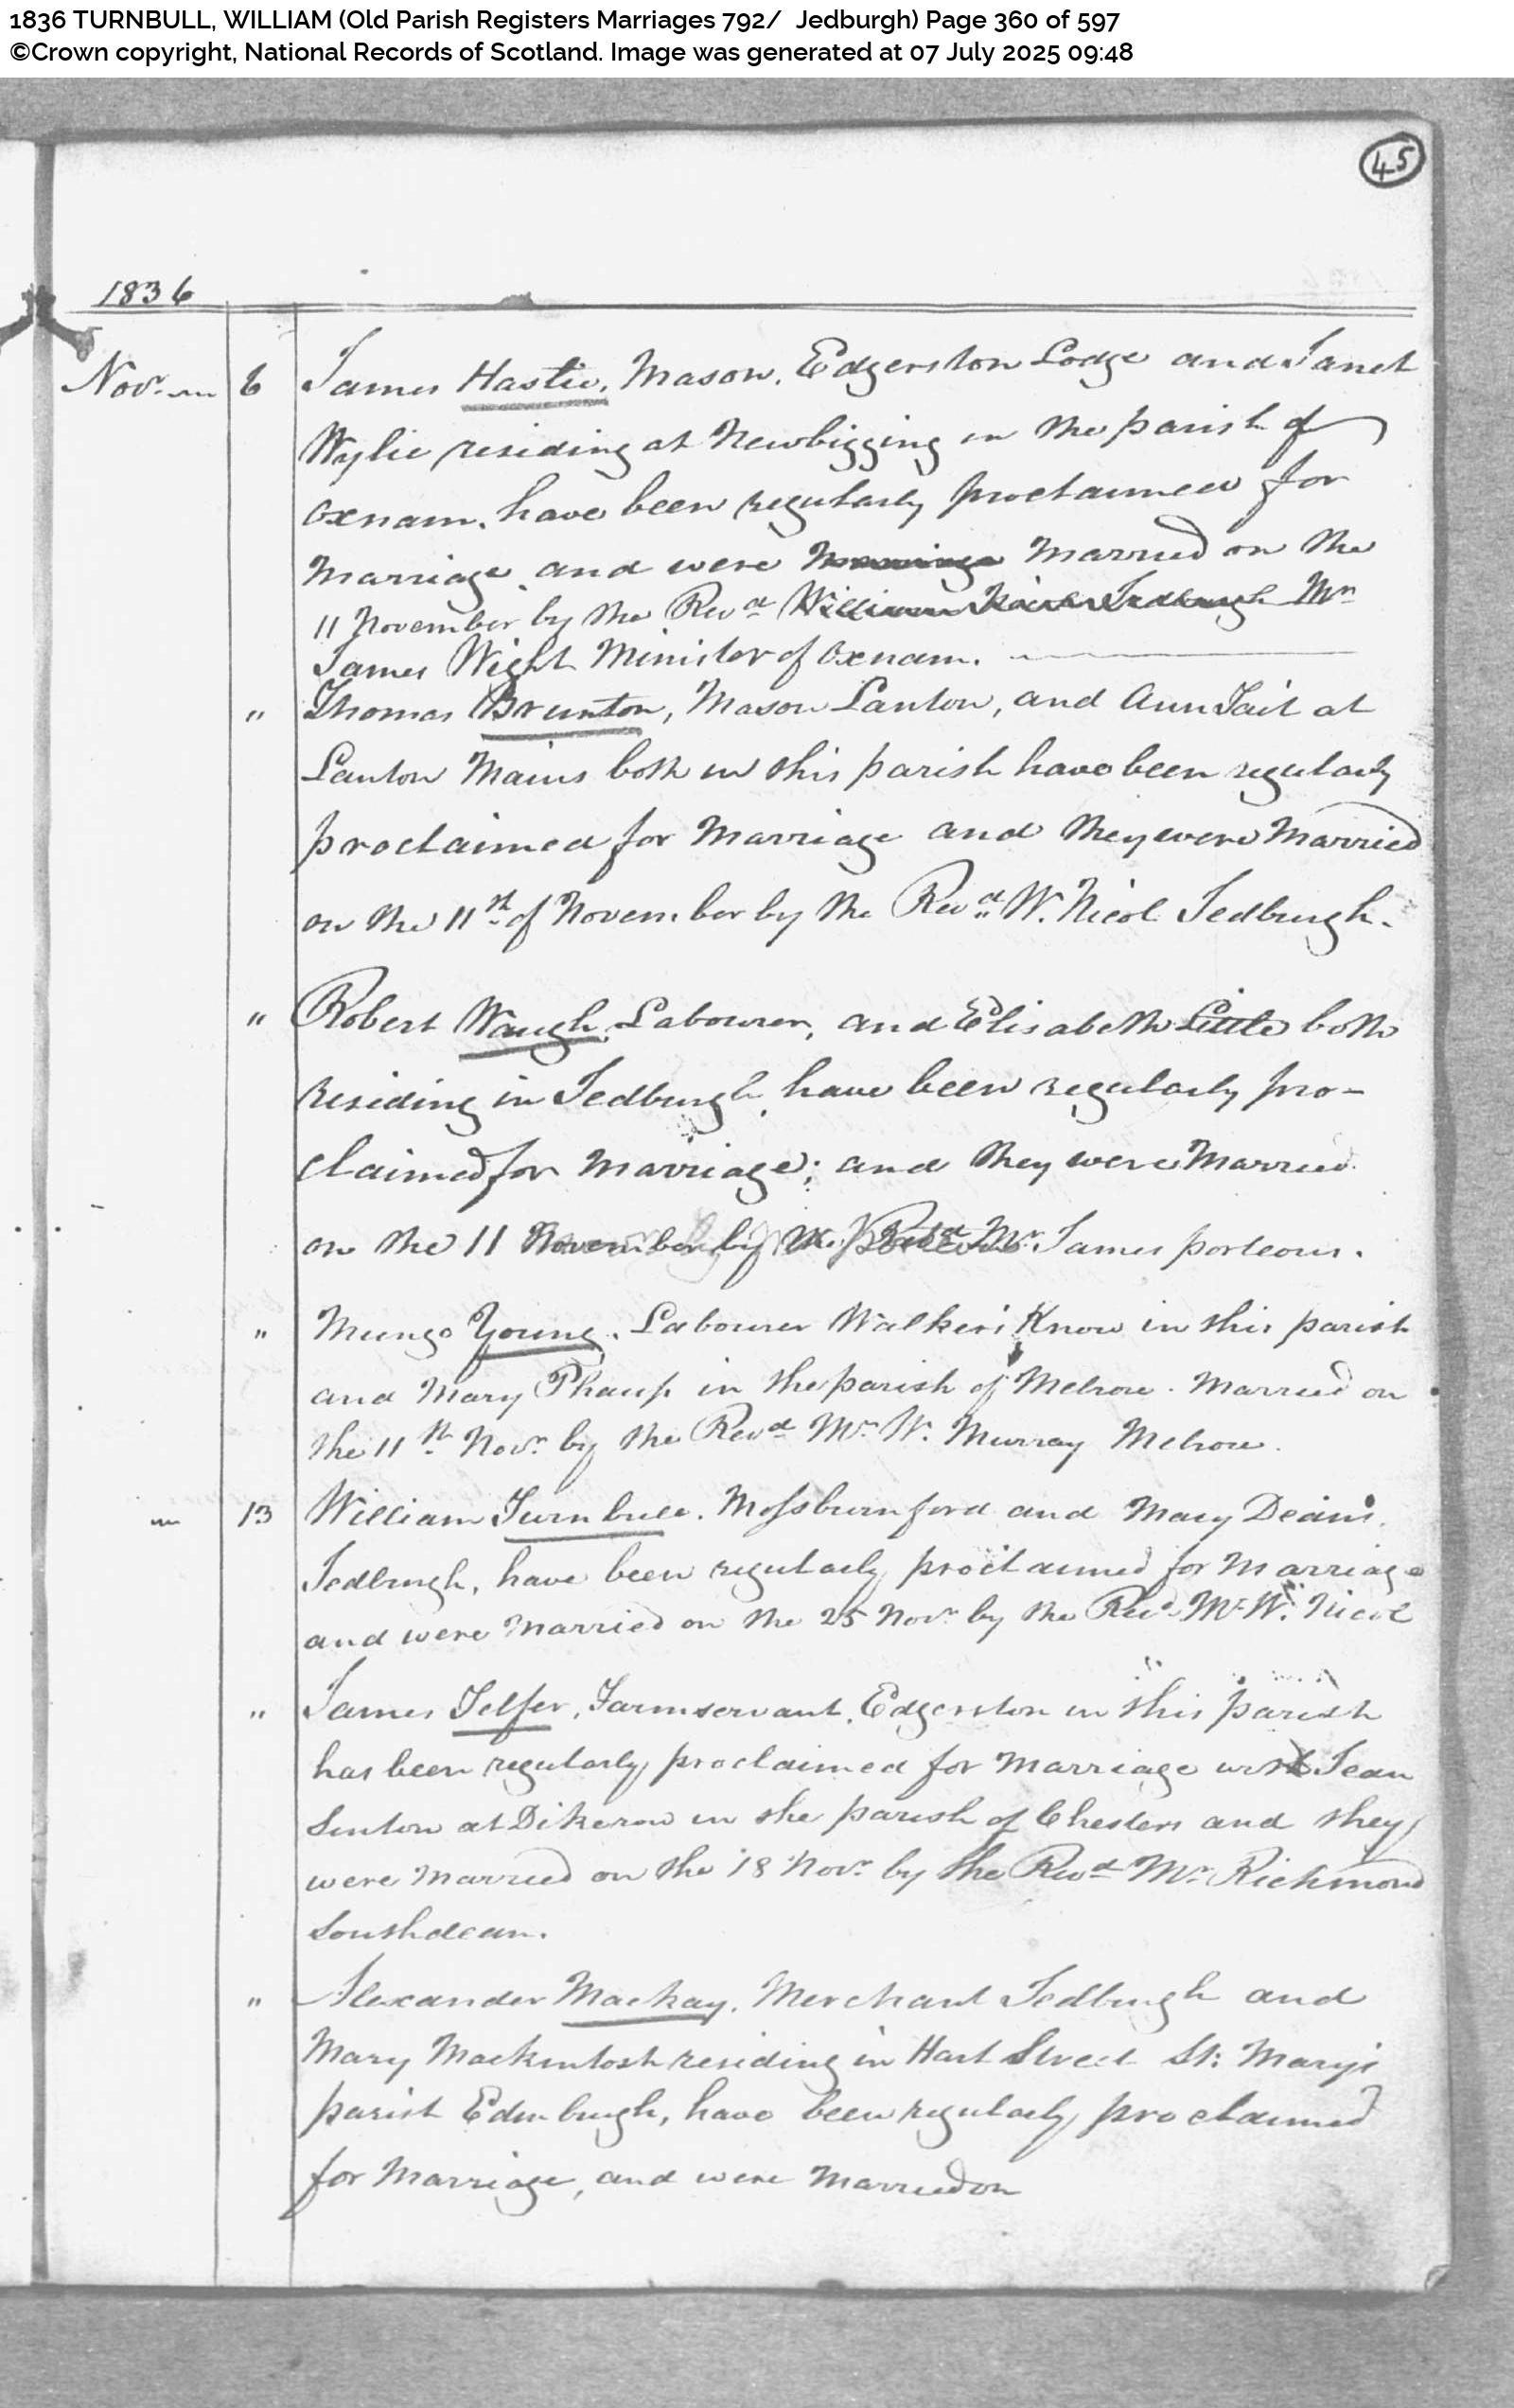 1836 TURNBULL, WILLIAM (Old Parish Registers Marriages 792/ Jedburgh) Page 360 of 597
©Crown copyright, National Records of Scotland. Image was generated at 07 July 2025 09:48
45
1836
Novr. 6 James Hastie, Mason, Edgerston Lodge and Janet
Wylie residing at Newbigging in the parish of
Oxnam, have been regularly proclaimed for
Marriage and were Marriage Married on the
11 November by the Revd William Jedburgh Mr
James Wight Minister of Oxnam.
" Thomas Brunton, Mason Lanton, and Ann Tait at
Lanton Mains both in this parish have been regularly
proclaimed for Marriage and they were Married
on the 11th of November by the Revd. W. Nicol Jedburgh.
" Robert Waugh, Labourer, and Elisabeth Little both
residing in Jedburgh, have been regularly pro-
claimed for Marriage; and they were Married
on the 11 November by Revd Mr. James porteous.
" Mungo Young, Labourer Walker's Know in this parish
and Mary Phaup in the parish of Melrose. Married on
the 11th Novr. by the Revd Mr W. Murray Melrose.
13 William Turnbull. Mossburnford and Mary Deans,
Jedburgh, have been regularly proclaimed for Marriage
and were Married on the 25 Novr by the Revd Mr W. Nicol
" James Telfer, Farmservant, Edgerston in this parish
has been regularly proclaimed for Marriage with Jean
Sinton at Dikerow in the parish of Chesters and they
were Married on the 18 Novr by the Revd Mr. Richmond
Southdean.
" Alexander Mackay, Merchant Jedburgh and
Mary Mackintosh residing in Hart Street St: Mary's
parish Edinburgh, have been regularly proclaimed
for Marriage, and were Married on